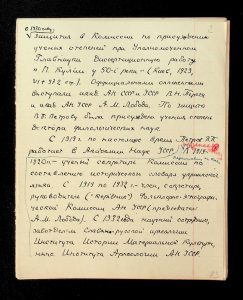 в 1930 году
защитил в Комиссии по присуждению
ученых степеней при Уполномоченном
Главнауки диссертационную работу
"П. Куліш у 50-і роки" (Київ, 1929,
572 стр.). Официальными оппонентами
выступали акад. АН УССР
и акад. АН УССР А.М. Лобода. По защите
В.П. Петрову была присуждена ученая степень
доктора филологических наук.
С 1919 по настоящее время Петров В.П.
работает в Академии Наук УССР. В 1919-
1920 гг. - ученый секретарь Комиссии по
составлению исторического словаря украинского
языка. С 1919 по 193 г. - член, секретарь,
руководитель ("керівник") Этнографо-
ческой Комиссии АН УССР (председатель
А.М. Лобода). С 1932 года научный сотрудник,
завотделом археологии
Института Истории Материальной Культуры,
ныне Института Археологии АН УССР.